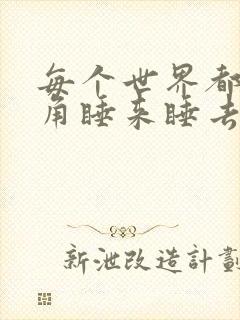 每个世界都
角睡来睡去
新泄改造計劃